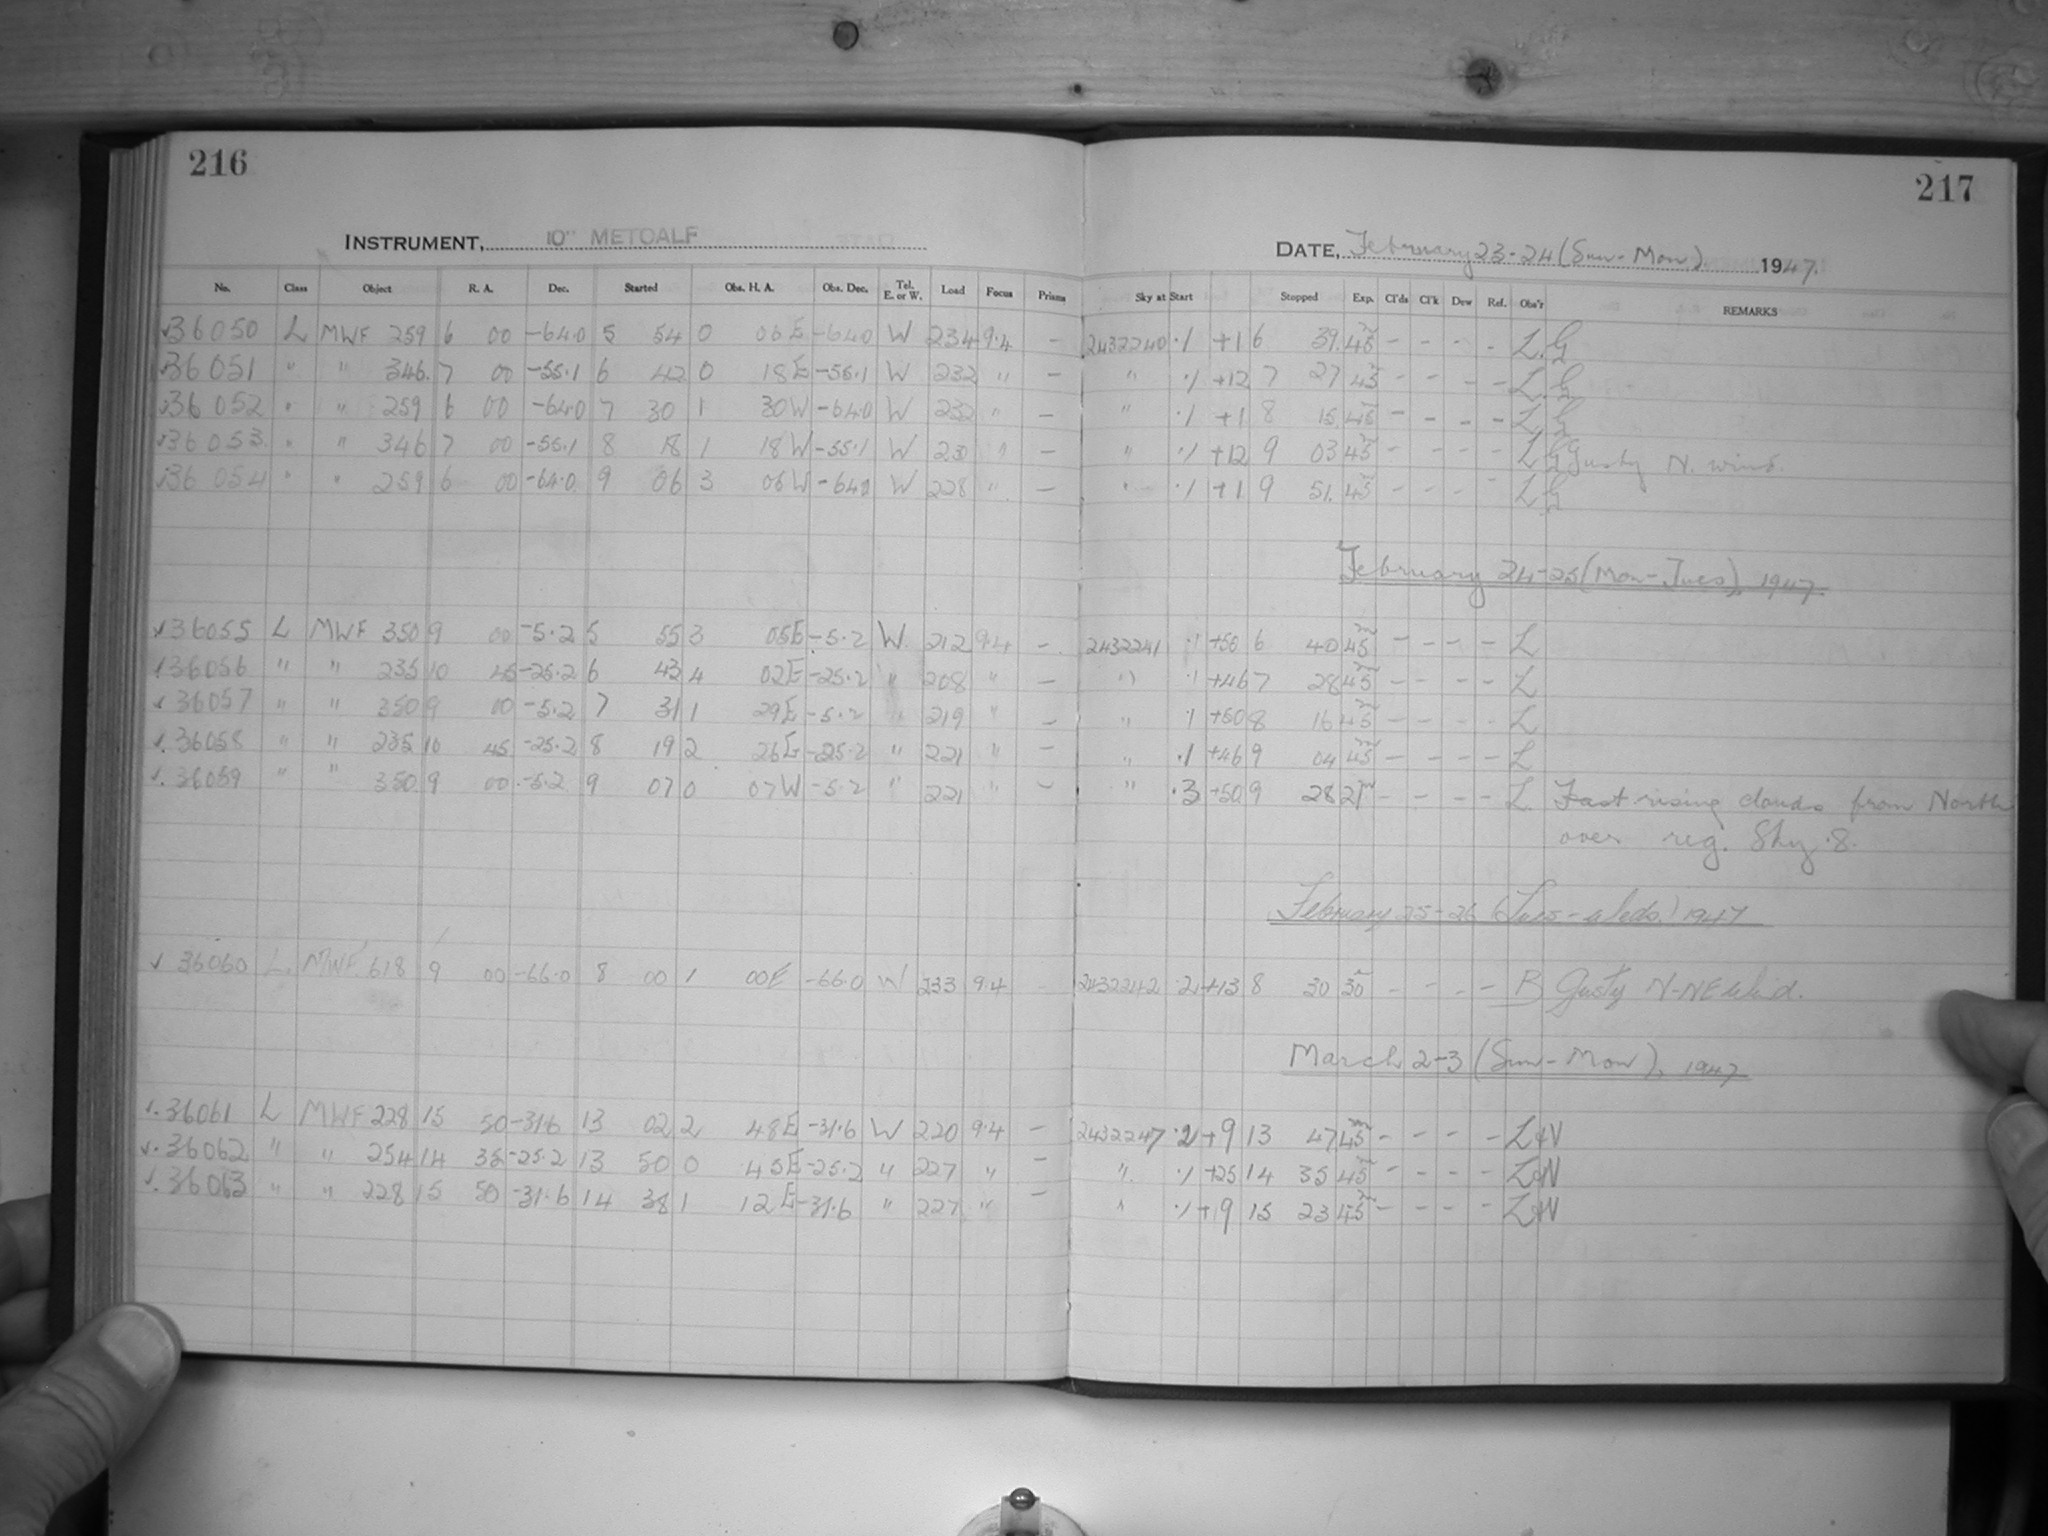 216
217
INSTRUMENT, 10" METCALF
DATE, February 23-24 (Sun-Mon) 1947.
No. Class Object R. A. Dec. Started Obs. H. A. Obs. Dec. Tel. E. or W. Load Focus Prisms Sky at Start Stopped Exp. Cl'ds Cl'k Dew Ref. Obs'r REMARKS
36050 L MWF 259 6 00 -64.0 5 54 0 06E -64.0 W 234 9.4 - 2432240 .1 +1 6 39 45m - - - - L.G
36051 " " 346 7 00 -55.1 6 42 0 18E -55.1 W 232 " - " .1 +12 7 27 45m - - - - L.G
36052 " " 259 6 00 -64.0 7 30 1 30W -64.0 W 232 " - " .1 +1 8 15 45m - - - - L.G
36053 " " 346 7 00 -55.1 8 18 1 18W -55.1 W 230 " - " .1 +12 9 03 45m - - - - L G Gusty N. wind.
36054 " " 259 6 00 -64.0 9 06 3 06W -64.0 W 228 " - " .1 +1 9 51 45m - - - - L G
February 24-25 (Mon-Tues), 1947.
36055 L MWF 350 9 00 -5.2 5 55 3 05E -5.2 W 212 9.4 - 2432241 .1 +50 6 40 45m - - - - L
36056 " " 235 10 45 -25.2 6 43 4 02E -25.2 " 208 " - " .1 +46 7 28 45m - - - - L
36057 " " 350 9 00 -5.2 7 31 1 29E -5.2 " 219 " - " .1 +50 8 16 45m - - - - L
36058 " " 235 10 45 -25.2 8 19 2 26E -25.2 " 221 " - " .1 +46 9 04 45m - - - - L
36059 " " 350 9 00 -5.2 9 07 0 07W -5.2 " 221 " - " .3 +50 9 28 21m - - - - L. Fast rising clouds from North
over reg. Sky .8.
February 25-26 (Tues-Weds.) 1947
36060 L. MWF 618 9 00 -66.0 8 00 1 00E -66.0 W 233 9.4 - 2432242 .2 +13 8 30 30 - - - - B Gusty N-NE Wind.
March 2-3 (Sun-Mon), 1947
36061 L MWF 228 15 50 -31.6 13 02 2 48E -31.6 W 220 9.4 - 2432247 .2 +9 13 47 45m - - - - L&N
36062 " " 254 14 35 -25.2 13 50 0 45E -25.2 " 227 " - " .1 +25 14 35 45m - - - - L&N
36063 " " 228 15 50 -31.6 14 38 1 12E -31.6 " 227 " - " .1 +9 15 23 45m - - - - L&N